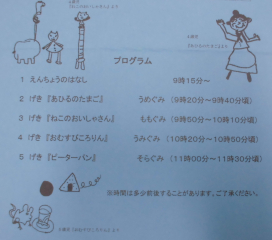 プログラム
1 えんちょうのはなし 9時15分～
2 げき『あひるのたまご』 うめぐみ (9時20分～9時40分頃)
3 げき『ねこのおいしゃさん』 ももぐみ (9時50分～10時10分頃)
4 げき『おむすびころりん』 うみぐみ (10時20分～10時50分頃)
5 げき『ピーターパン』 そらぐみ (11時00分～11時30分頃)
※時間は多少前後することがあります。ご了承ください。